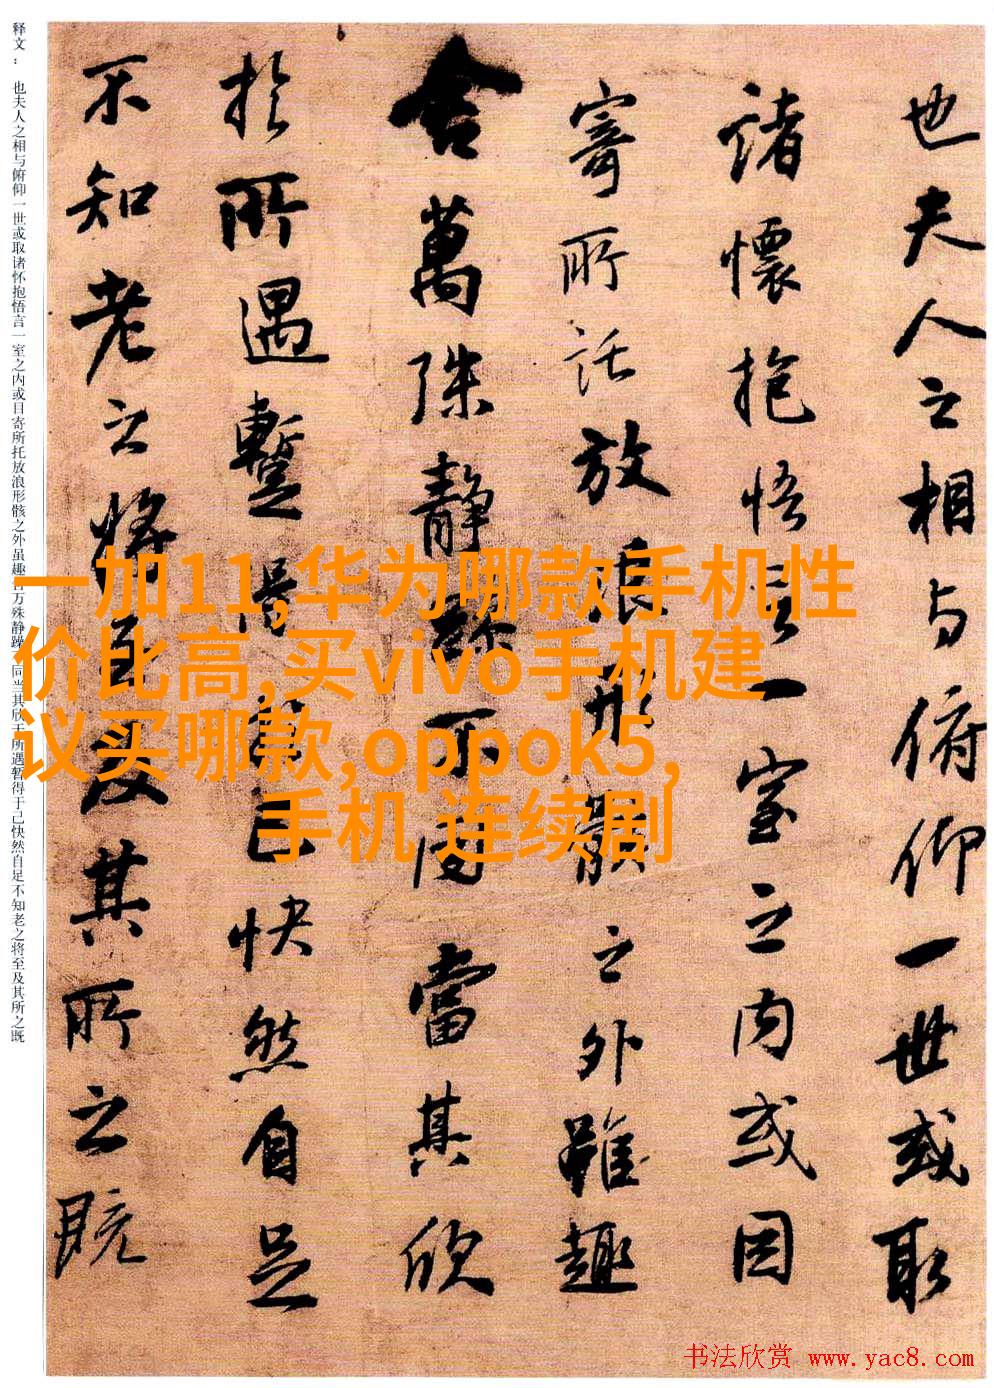 释文： 也夫人之相与俯仰一世或取诸怀抱悟言一室之内或目寄所托放浪形骸之外虽趣舍万殊静躁不同当其欣于所遇暂得于己快然自足不知老之将至及其所之既
也夫人之相与俯仰一世或取
諸懷抱悟言一室之内或因
寄所託放浪形骸之外雖趣
舍萬殊静躁不同當其欣
於所遇蹔得於己快然自足
不知老之将至及其所之既
一加11,华为哪款手机性
价比高,买vivo手机建
议买哪款,oppok5,
手机 连续剧
书法欣赏 www.yac8.com